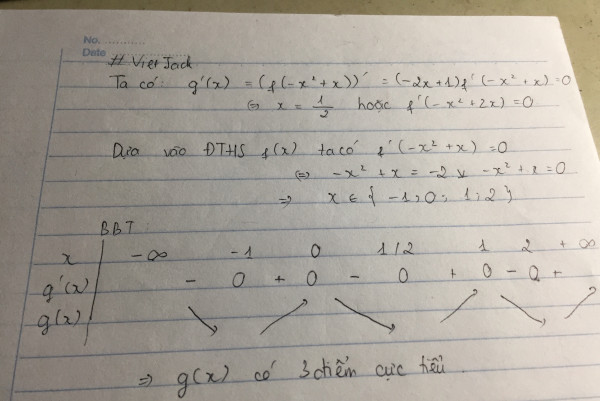 No. ............
Date ............
# VietJack
Ta có: g'(x) = (f(-x² + x))' = (-2x+1)f'(-x²+x) = 0
⇔ x = 1/2 hoặc f'(-x²+2x) = 0
Dựa vào ĐTHS f(x) ta có f'(-x²+x) = 0
⇔ -x²+x = -2 v -x²+x = 0
⇒ x ∈ { -1; 0; 1; 2 }
BBT
x -∞ -1 0 1/2 1 2 +∞
g'(x) - 0 + 0 - 0 + 0 - 0 +
g(x) ↘ ↗ ↘ ↗ ↘ ↗
⇒ g(x) có 3 điểm cực tiểu.